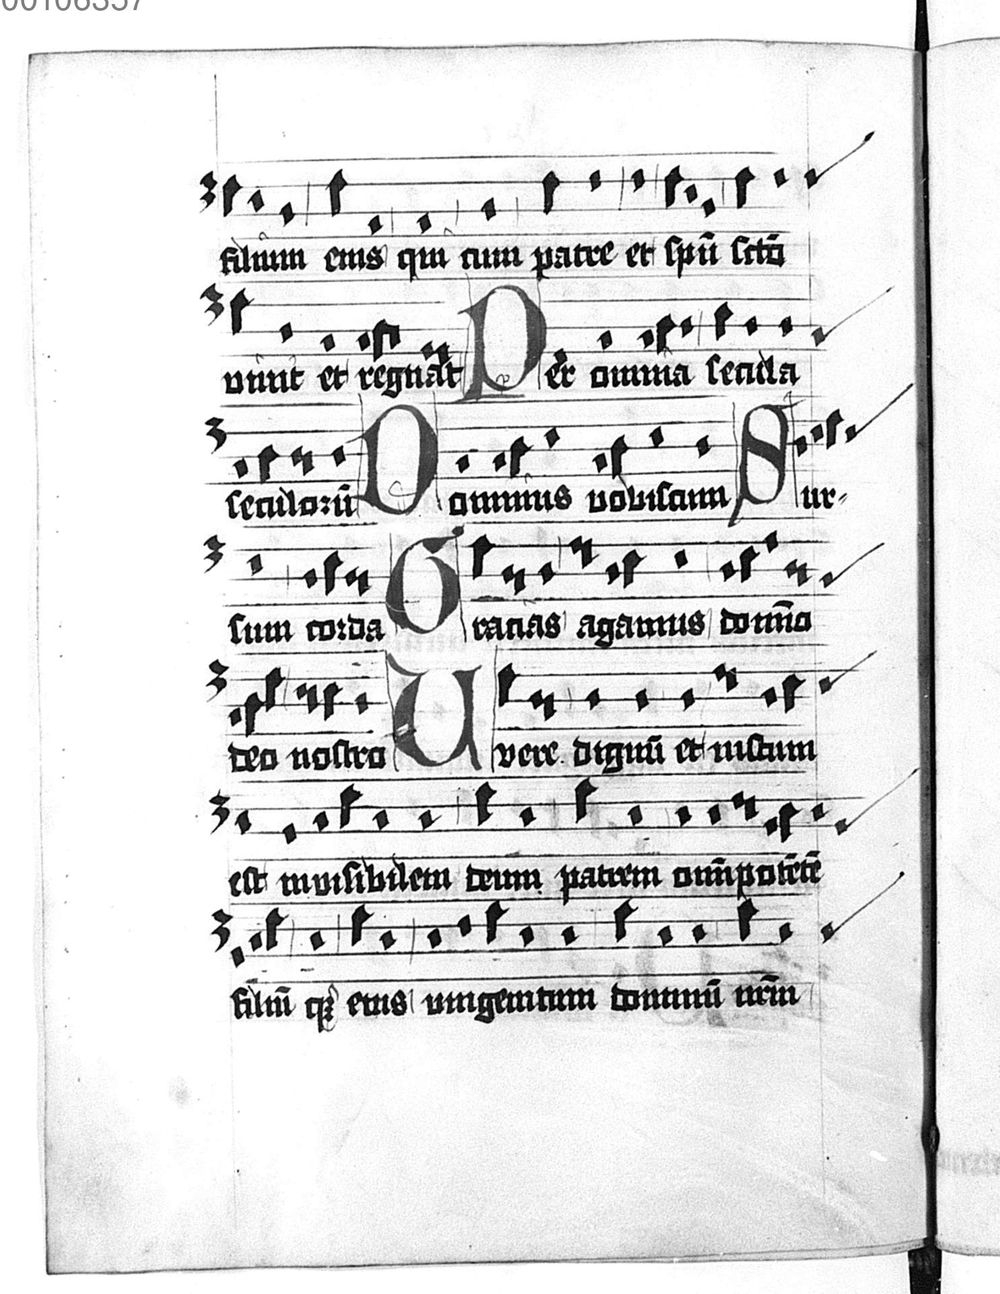 00106357
filium eius qui cum patre et spū sctō
viuit et regnat Per omnia secula
seculorū Dominus vobiscum Sur-
sum corda Gracias agamus domīo
deo nostro Uere dignū et iustum
est inuisibilem deum patrem omīpotētē
filiū qꝫ eius vnigenitum dominū nrm̄